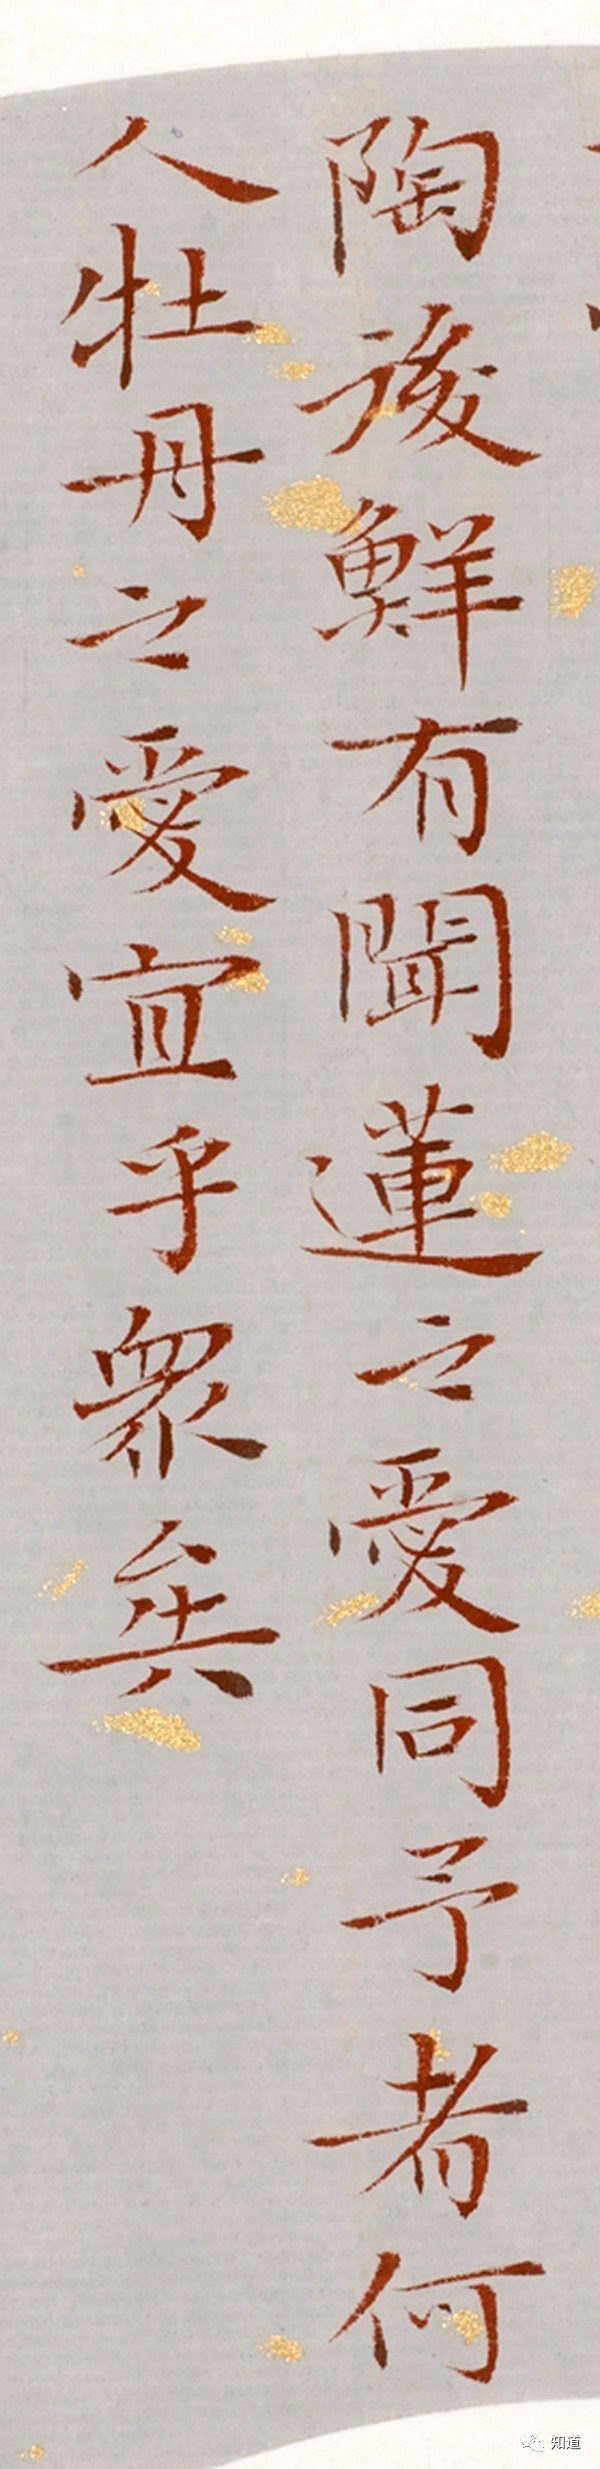 陶後鮮有聞蓮之愛同予者何
人牡丹之愛宜乎眾矣
知道